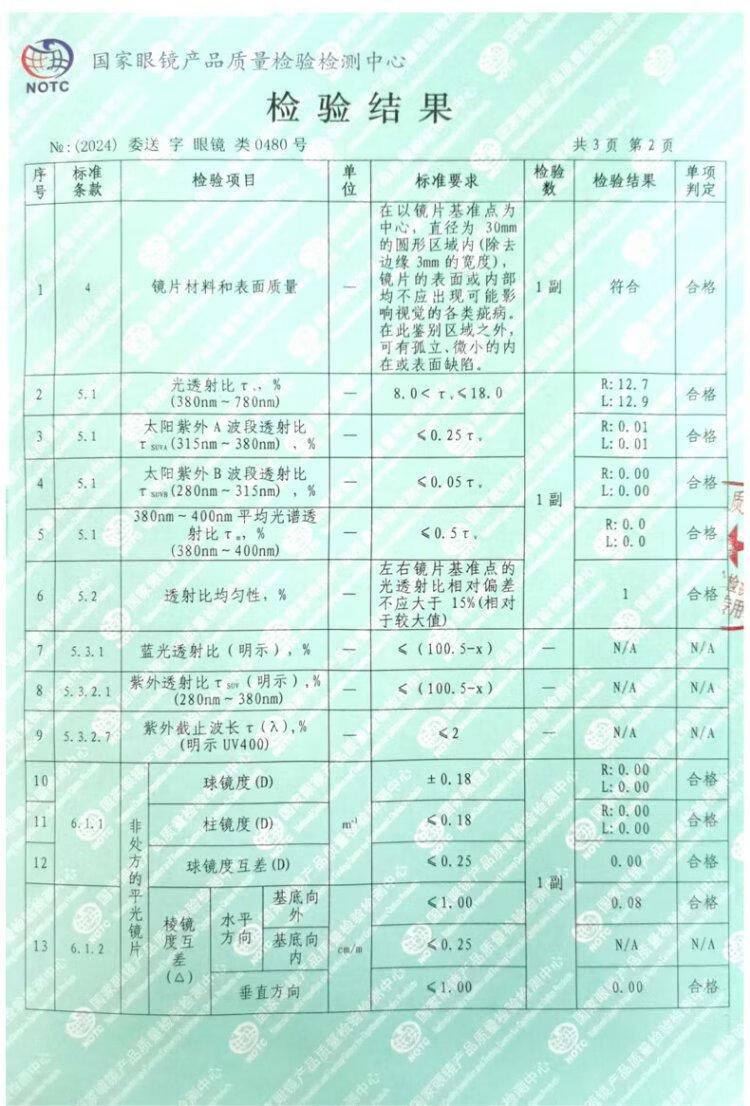 NOTC
国家眼镜产品质量检验检测中心
检验结果
№:(2024) 委送 字 眼镜 类0480号
共3页 第2页
序号 标准条款 检验项目 单位 标准要求 检验数 检验结果 单项判定
1 4 镜片材料和表面质量 — 在以镜片基准点为
中心，直径为 30mm
的圆形区域内(除去
边缘3mm的宽度)，
镜片的表面或内部
均不应出现可能影
响视觉的各类疵病。
在此鉴别区域之外，
可有孤立、微小的内
在或表面缺陷。
1副 符合 合格
2 5.1 光透射比τv，%
(380nm~780nm)
— 8.0<τv≤18.0
R:12.7
L:12.9
合格
3 5.1 太阳紫外A波段透射比
τSUVA(315nm~380nm)，%
— ≤0.25τv
R:0.01
L:0.01
合格
4 5.1 太阳紫外B波段透射比
τSUVB(280nm~315nm)，%
— ≤0.05τv
R:0.00
L:0.00
合格
1副
5 5.1 380nm~400nm平均光谱透
射比τm，%
(380nm~400nm)
— ≤0.5τv
R:0.0
L:0.0
合格
6 5.2 透射比均匀性，% —
左右镜片基准点的
光透射比相对偏差
不应大于 15%(相对
于较大值)
1 合格
7 5.3.1 蓝光透射比（明示），% — ≤(100.5-x) — N/A N/A
8 5.3.2.1 紫外透射比τSUV（明示）,%
(280nm~380nm)
— ≤(100.5-x) — N/A N/A
9 5.3.2.7 紫外截止波长τ(λ),%
(明示UV400)
— ≤2 — N/A N/A
10 球镜度(D) ±0.18
R:0.00
L:0.00
合格
11 6.1.1 非处方的平光镜片 柱镜度(D) m⁻¹ ≤0.18
R:0.00
L:0.00
合格
12 球镜度互差(D) ≤0.25 0.00 合格
1副
13 6.1.2 棱镜度互差(△) 水平方向 基底向外 cm/m ≤1.00 0.08 合格
基底向内 ≤0.25 N/A N/A
垂直方向 ≤1.00 0.00 合格